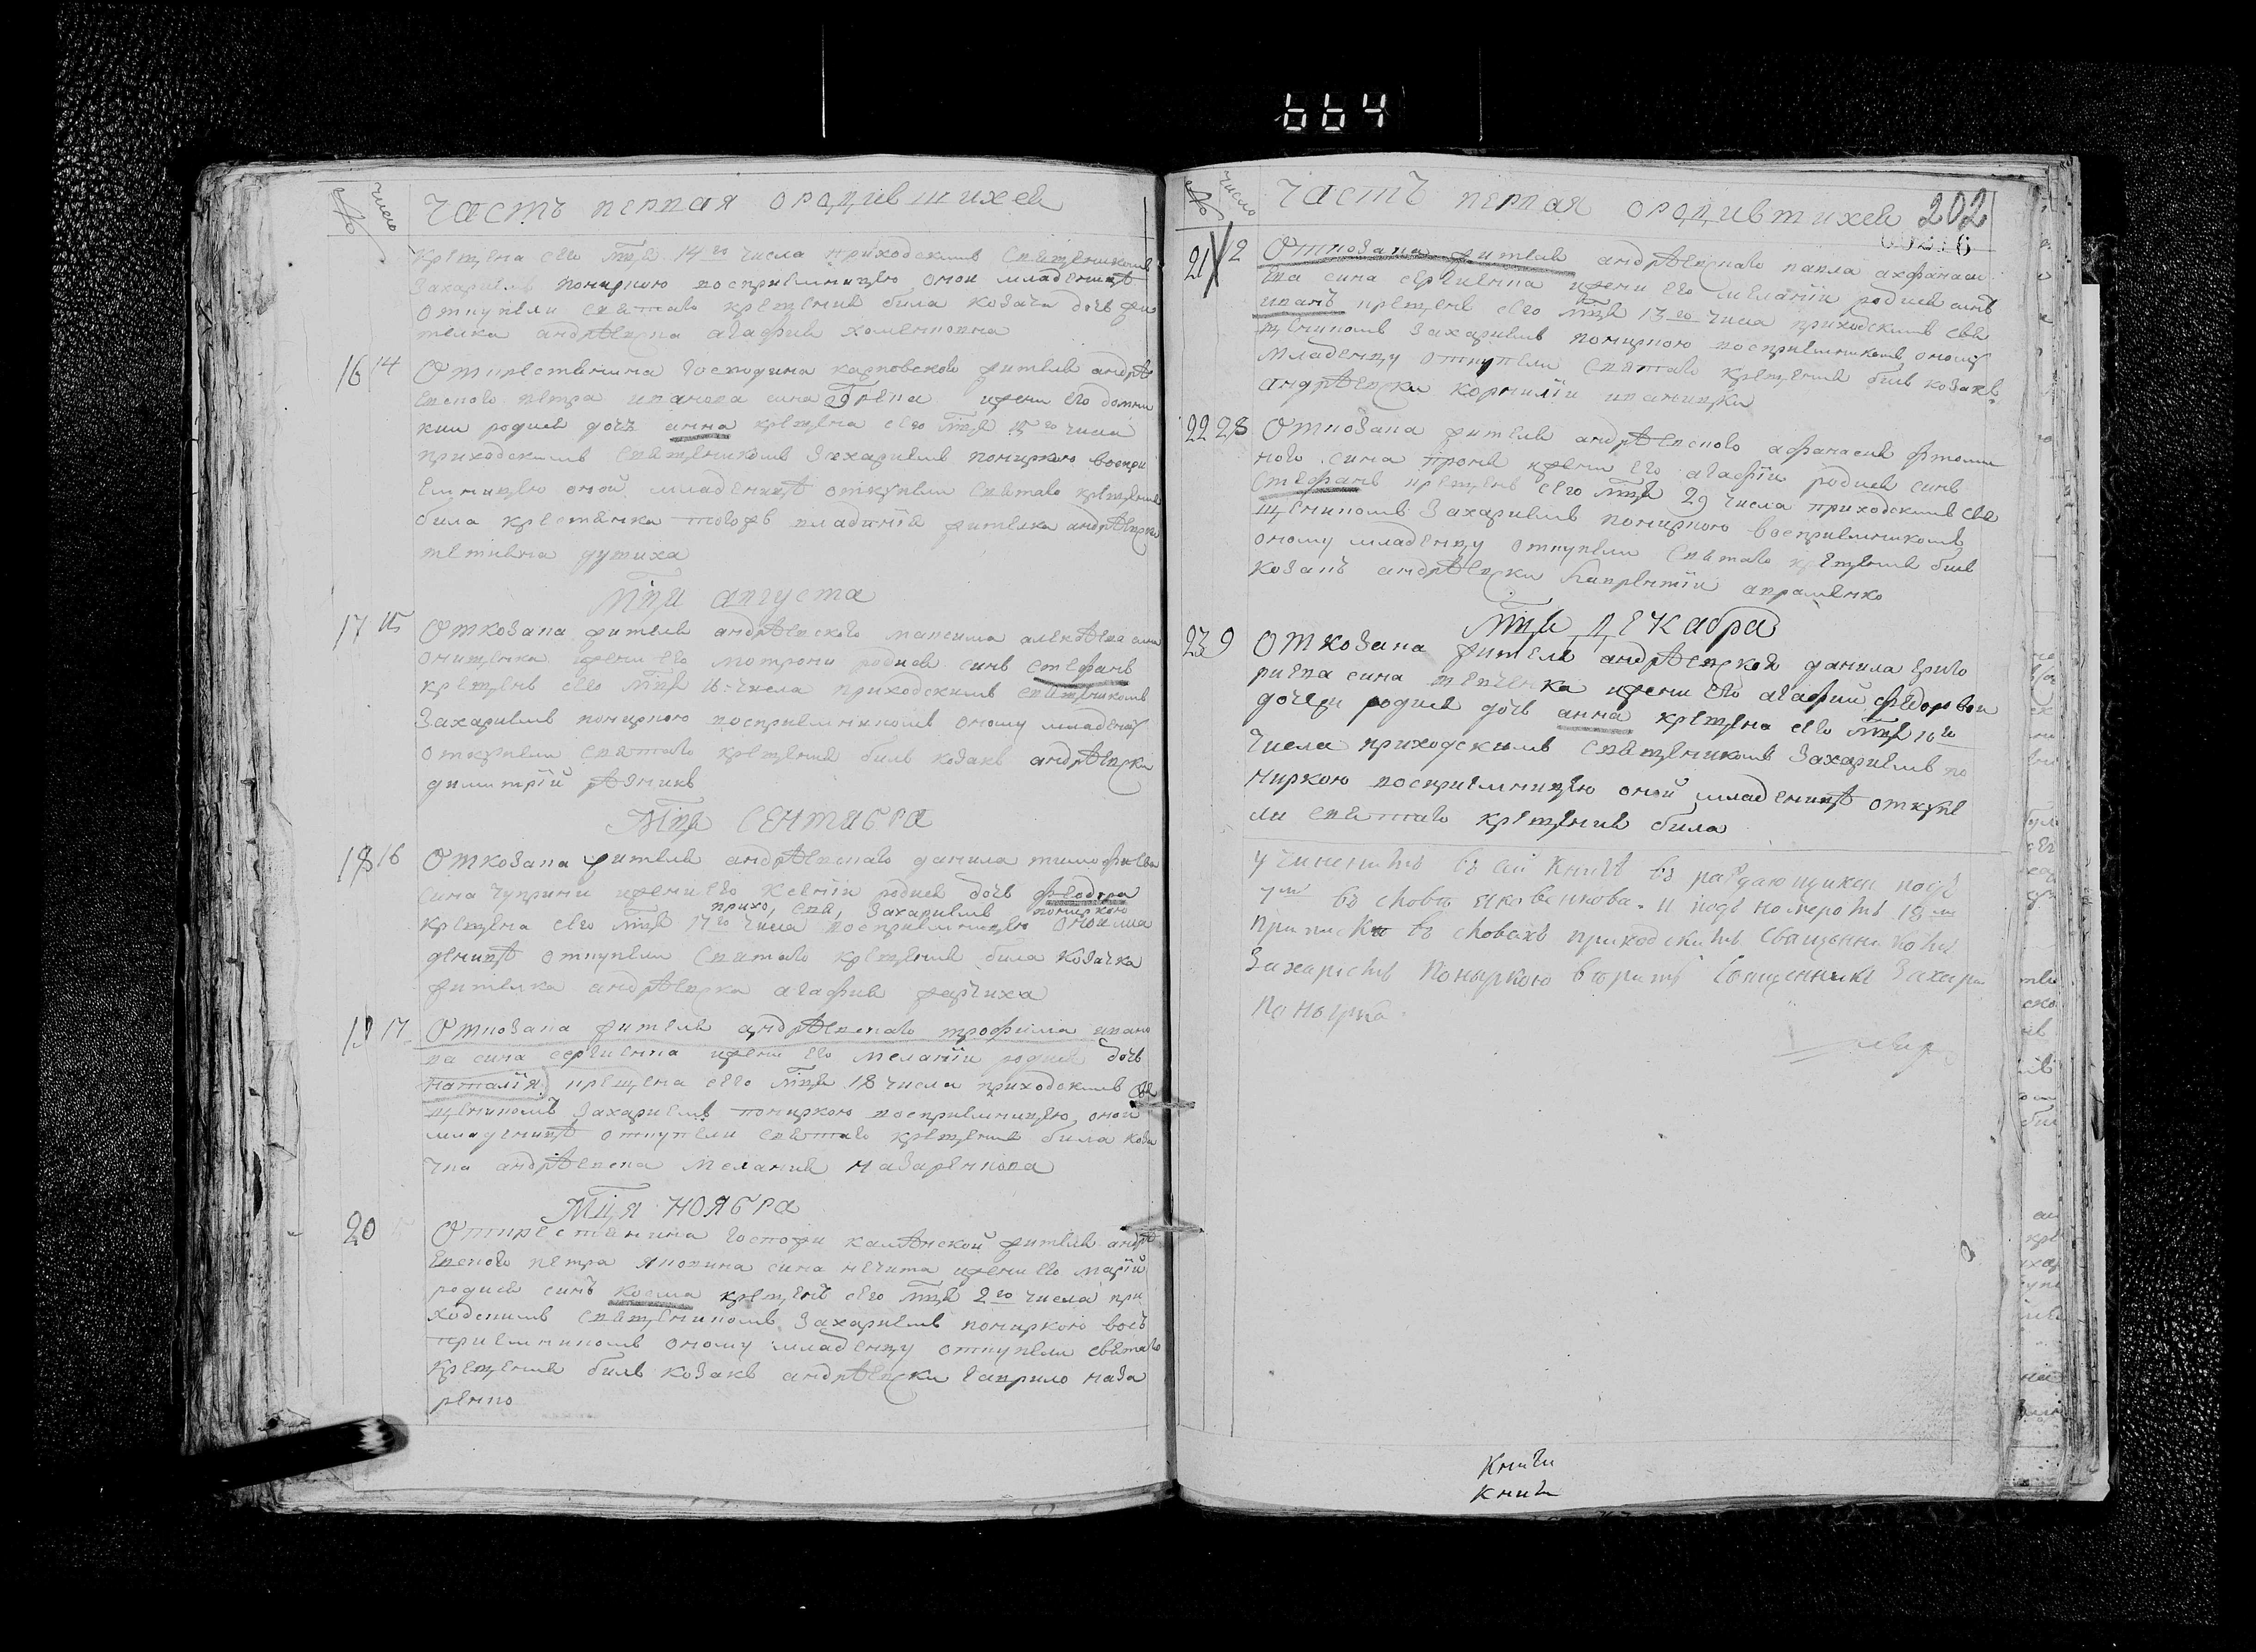 664
№ число Часть первая ородившихся
крещена сего мца 14го числа приходскимъ священикомъ
Захариемъ пониркою восприемницею оной младеницѣ
откупели святаго крещения била козача дочь жи
телка андрѣевска агафия хоменковна
16 14 Открестянина господина карповского жителя андрѣ
евского петра иванова сина жени его домни
кии родися дочь анна крещена сего мца 15го числа
приходскимъ священикомъ Захариемъ пониркою воспри
емницею оной младеницѣ откупели святаго крещения
била крестянка тогожъ владѣния жителка андрѣевска
дутиха
Мца августа
17 15 Откозака жителя андрѣевского максима алексѣева сина
онищенка жени его мотрони родися синъ стефанъ
крещенъ сего мца 16 числа приходскимъ священикомъ
Захариемъ пониркою восприемникомъ оному младенцу
откупели святаго крещения билъ козакъ андрѣевски
димитрій рѣзникъ
Мца сентября
18 16 Откозака жителя андрѣевскаго данила тимофиева
сина чуприни жени его ксеніи родися дочь феодора
прихо, свя, Захариемъ пониркою
крещена сего мца 17го числа восприемницею оной мла
деницѣ откупели святаго крещения била козачка
жителка андрѣевска агафия
19 17 Откозака жителя андрѣевскаго трофима ивано
ва сина сергиенка жени его меланіи родися дочь
наталія крещена сего мца 18 числа приходскимъ свя
щеникомъ Захариемъ пониркою восприемницею оной
младеницѣ откупели святаго крещения била коза
чка андрѣевска мелания назаренкова
Мця ноября
20 Открестянина госпожи калѣнской жителя андрѣ
евского петра яковина сина нечита жени его маріи
родися синъ косма крещенъ сего мца 2го числа при
ходскимъ священикомъ Захариемъ пониркою вос
приемникомъ оному младенцу откупели святаго
крещения билъ козакъ андрѣевски гаврило наза
ренко
№ число Часть первая ородившихся 202
21 2 Откозака жителя андрѣевскаго павла ахфанаси
ева сина сергиенка жени его меланіи родися синъ
иванъ крещенъ сего мца 13го числа приходскимъ свя
щеникомъ Захариемъ пониркою восприемникомъ оному
младенцу откупели святаго крещения билъ козакъ
андрѣевски корнилій иваницки
22 28 Откозака жителя андрѣевского афанасия
ного сина жени его агафіи родися синъ
стефанъ крещенъ сего мца 29 числа приходскимъ свя
щеникомъ Захариемъ пониркою восприемникомъ
оному младенцу откупели святаго крещения билъ
козакъ андрѣевски лаврентій авраменко
Мца декабра
23 9 Откозака жителя андрѣевской данила григо
риева сина жени его агафии федоровои
дочери родися дочь анна крещена сего мца 10го
числа приходскимъ священикомъ Захариемъ по
ниркою восприемницею оной младеницѣ откупе
ли святаго крещения била
въ сей книгѣ въ раждающихся подъ
въ словѣ яковенкова и подъ номеромъ 18мъ
приписка въ словахъ приходскимъ священникомъ
Захариемъ Поныркою вѣрить священникъ Захари
Понырка
книги
книги